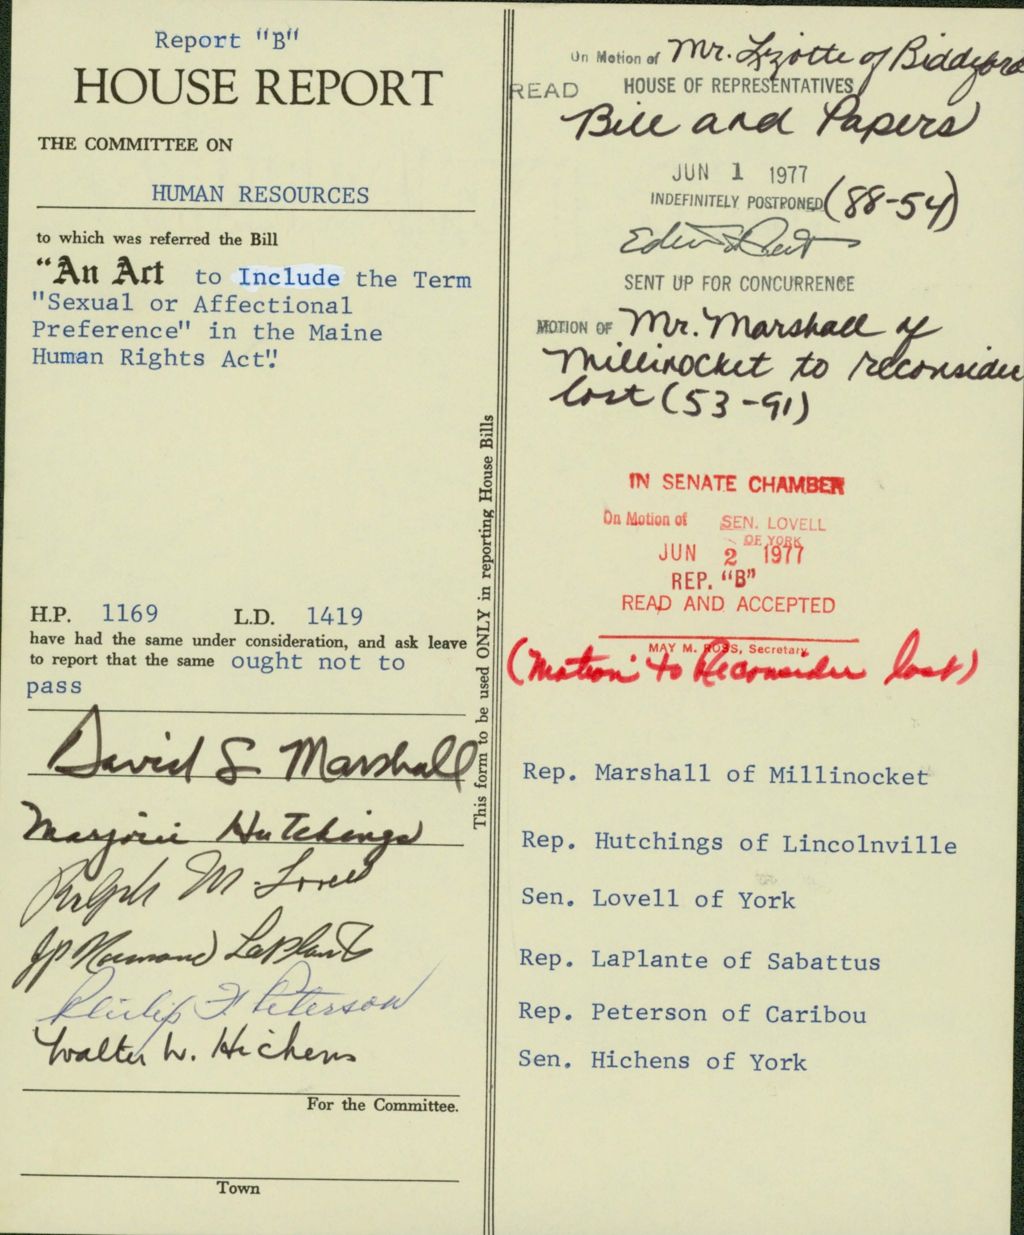 Report "B"
HOUSE REPORT
THE COMMITTEE ON
HUMAN RESOURCES
to which was referred the Bill
"An Act to Include the Term
"Sexual or Affectional
Preference" in the Maine
Human Rights Act".
H.P. 1169 L.D. 1419
have had the same under consideration, and ask leave
to report that the same ought not to
pass
David S Marshall
Marjorie Hutchings
Ralph M. Lovell
JP Normand LaPlante
Philip F Peterson
Walter W. Hichens
For the Committee.
Town
This form to be used ONLY in reporting House Bills
On Motion of Mr. Lizotte of Biddeford
READ HOUSE OF REPRESENTATIVES
Bill and Papers
JUN 1 1977
INDEFINITELY POSTPONED (88-54)
SENT UP FOR CONCURRENCE
MOTION OF Mr. Marshall of
Millinocket to reconsider
lost (53-91)
IN SENATE CHAMBER
On Motion of SEN. LOVELL
OF YORK
JUN 2 1977
REP. "B"
READ AND ACCEPTED
MAY M. ROSS, Secretary
(Motion to Reconsider lost)
Rep. Marshall of Millinocket
Rep. Hutchings of Lincolnville
Sen. Lovell of York
Rep. LaPlante of Sabattus
Rep. Peterson of Caribou
Sen. Hichens of York